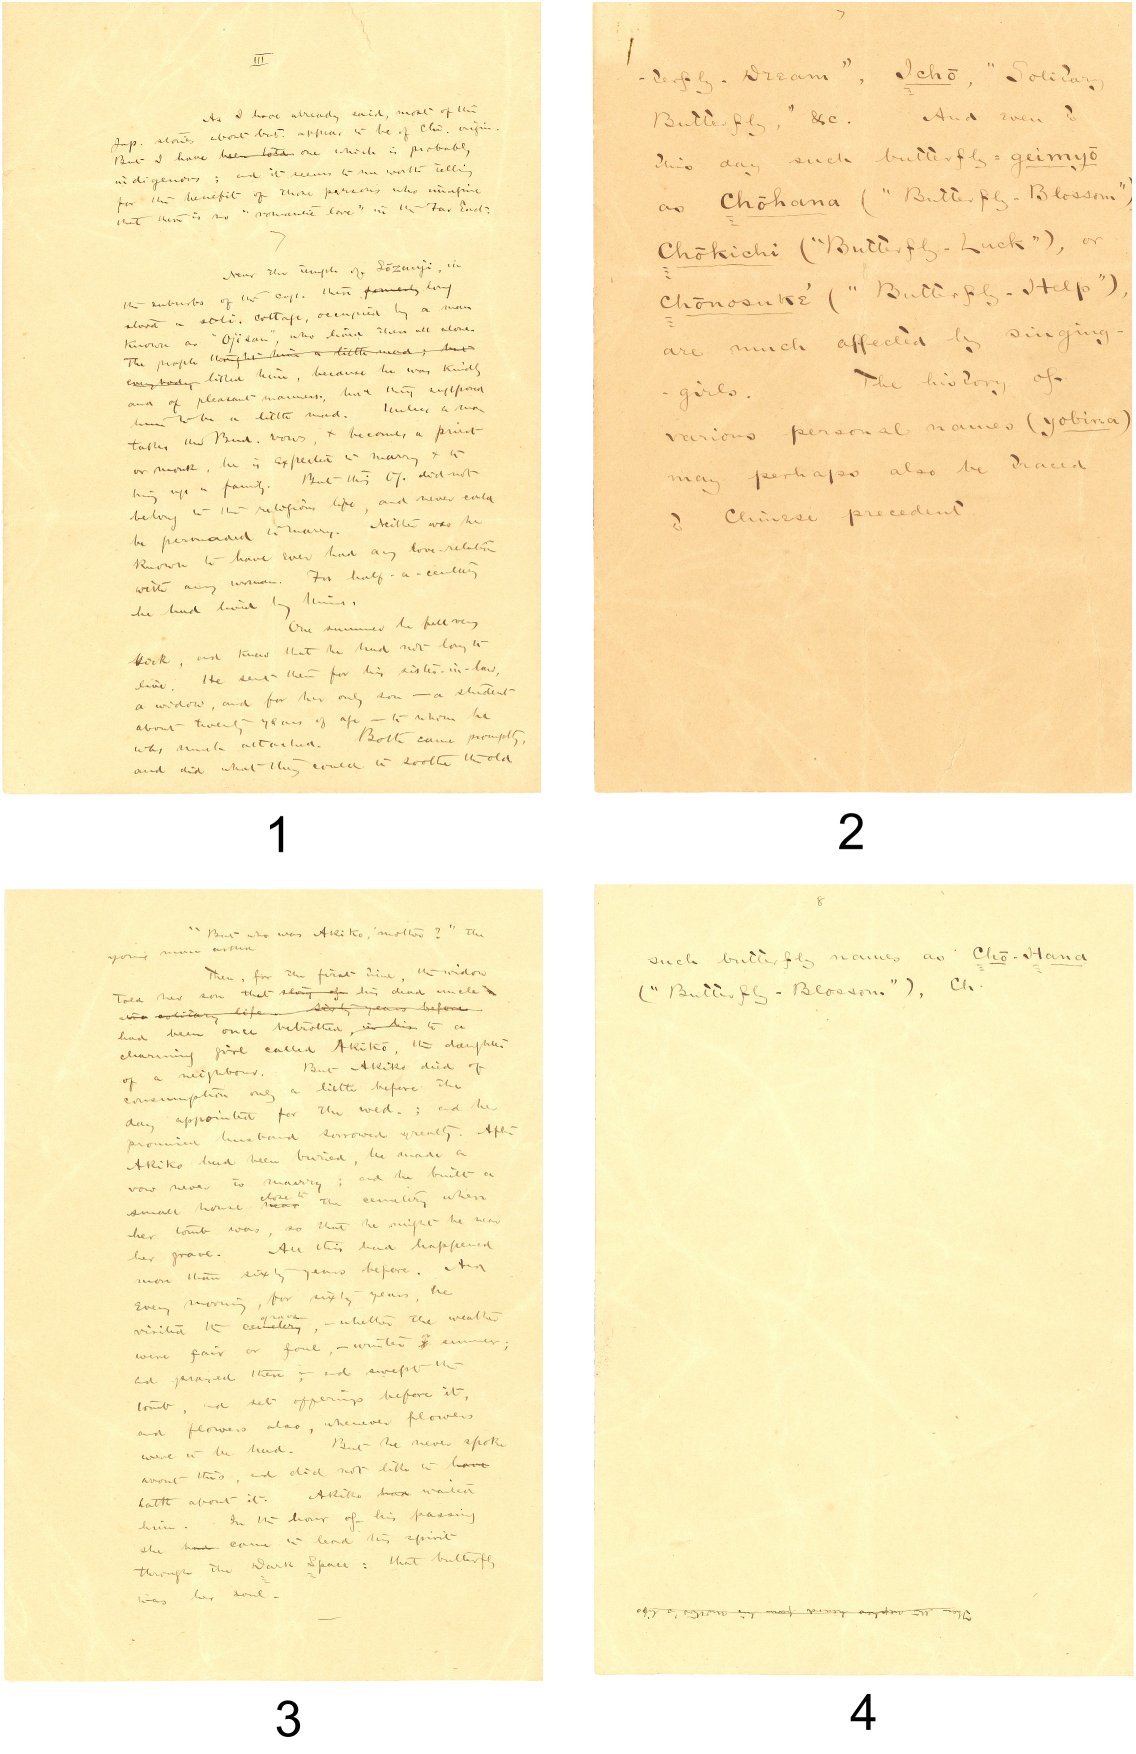 III
As I have already said, most of the
Jap. stories about but. appear to be of Chi. origin.
But I have been told one which is probably
indigenous ; and it seems to me worth telling
for the benefit of those persons who imagine
that there is no "romantic love" in the Far East:
Near the temple of Sōzanji, in
the suburbs of the cap. there formerly long
stood a soli. cottage, occupied by a man
known as "Ojisan", who lived there all alone.
The people thought him a little mad ; but
everybody liked him, because he was kindly
and of pleasant manners, but they supposed
him to be a little mad. Unless a man
takes the Bud. vows, + becomes a priest
or monk, he is expected to marry + to
bring up a family. But this did not
belong to the religious life, and never could
be persuaded to marry. Neither was he
known to have ever had any love-relation
with any woman. For half-a-century
he had lived by hims.
One summer he fell very
sick, and knew that he had not long to
live. He sent then for his sister-in-law,
a widow, and for her only son — a student
about twenty years of age — to whom he
was much attached. Both came promptly,
and did what they could to soothe the old
1
7
-terfly-Dream", Ichō, "Solitary
Butterfly," &c. And even to
this day such butterfly=geimyō
as Chōhana ("Butterfly-Blossom")
Chōkichi ("Butterfly-Luck"), or
Chōnosuké ("Butterfly-Help"),
are much affected by singing-
-girls. The history of
various personal names (yobina)
may perhaps also be traced
to Chinese precedent.
2
"But who was Akiko, mother ?" the
young man asked
Then, for the first time, the widow
told her son that story of his dead uncle
solitary life. Sixty years before
had been once betrothed, in his to a
charming girl called Akiko, the daughter
of a neighbour. But Akiko died of
consumption only a little before the
day appointed for the wed. ; and her
promised husband sorrowed greatly. After
Akiko had been buried, he made a
vow never to marry ; and he built a
small house near close to the cemetery where
her tomb was, so that he might be near
her grave. All this had happened
more than sixty years before. And
every morning, for sixty years, he
visited the cemetery grave, — whether the weather
were fair or foul, — winter or summer ;
and prayed there ; — and swept the
tomb, and set offerings before it,
and flowers also, whenever flowers
were to be had. But he never spoke
about this, and did not like to have
talk about it. Akiko had waited
him. In the hour of his passing
she had come to lead his spirit
through the Dark Space : that butterfly
was her soul.
3
8
such butterfly names as Chō-Hana
("Butterfly-Blossom"), Ch.
Then the nephew heard from his mother's lips
4